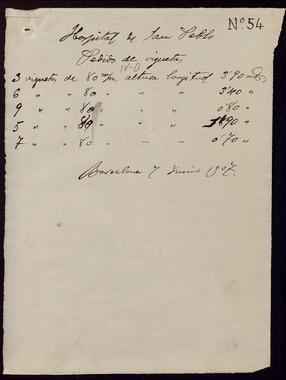 Nº 54
Hospital de San Pablo
Pedido de viguetas
3 viguetas de 80 m/m altura longitud 3'90 mts
6 " " 80 " " " 3'40 "
9 " " 80 " " " 0'80 "
5 " " 80 " " " 1'890 "
7 " " 80 " — — 0'70 "
Barcelona 7 Junio 1907.